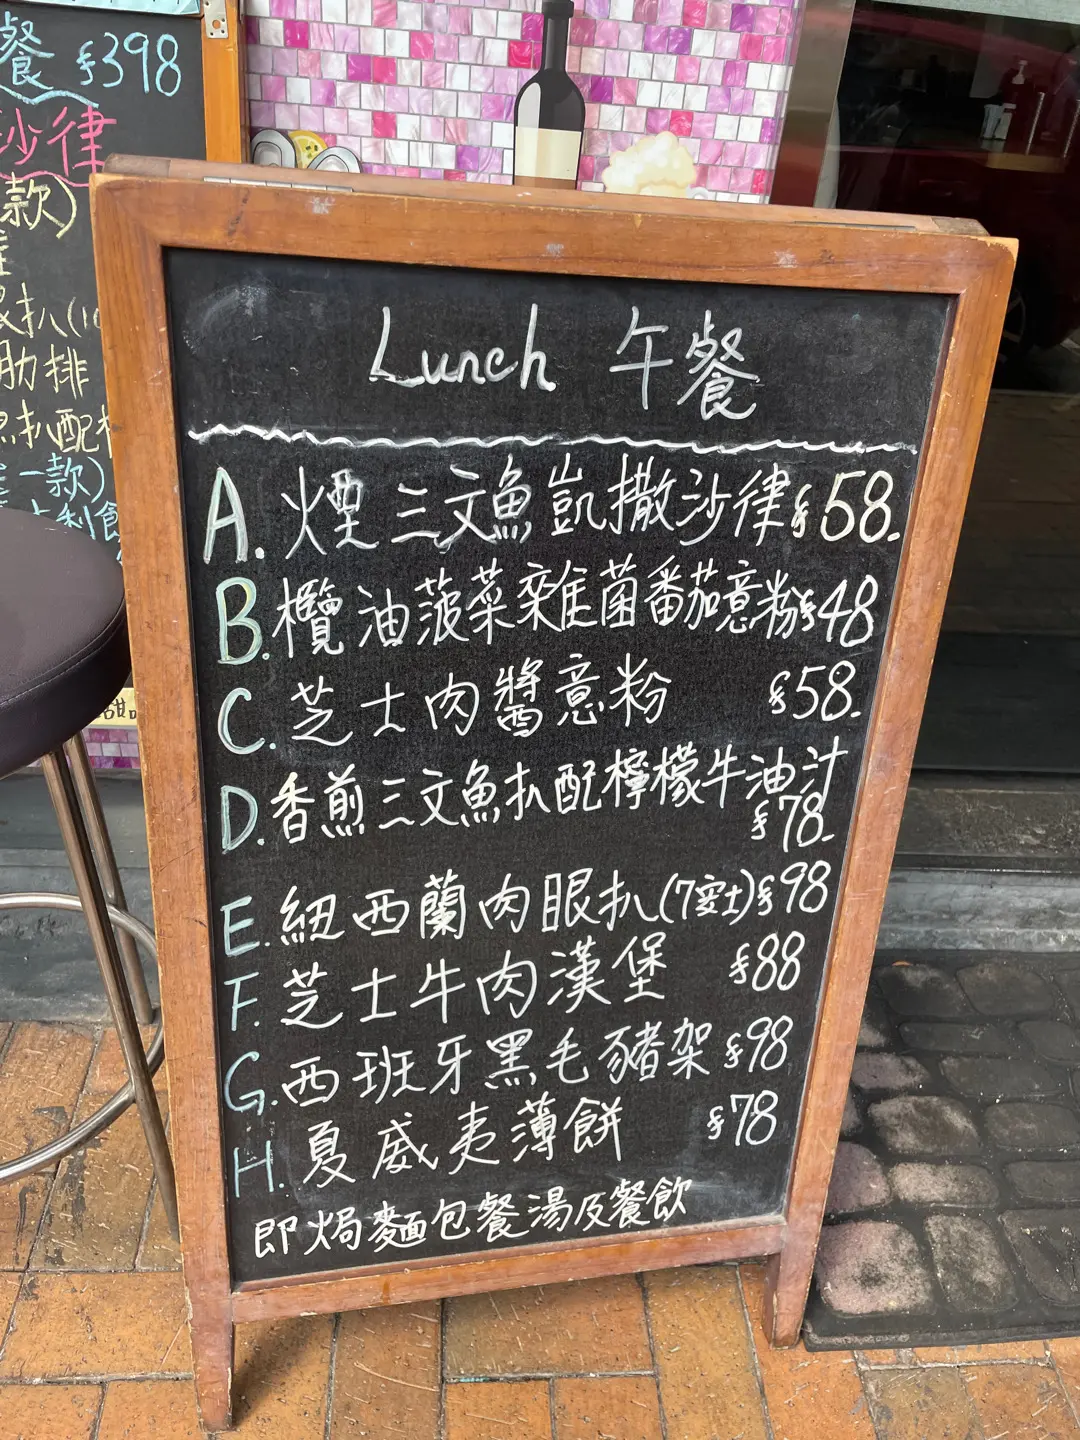 餐 $398
沙律
款)
扒(10
肋排
扒配檸
一款)
Lunch 午餐
A. 煙三文魚凱撒沙律 $58.
B. 欖油菠菜雜菌番茄意粉 $48
C. 芝士肉醬意粉 $58.
D. 香煎三文魚扒配檸檬牛油汁
$78.
E. 紐西蘭肉眼扒(7安士) $98
F. 芝士牛肉漢堡 $88
G. 西班牙黑毛豬架 $98
H. 夏威夷薄餅 $78
即焗麵包餐湯及餐飲